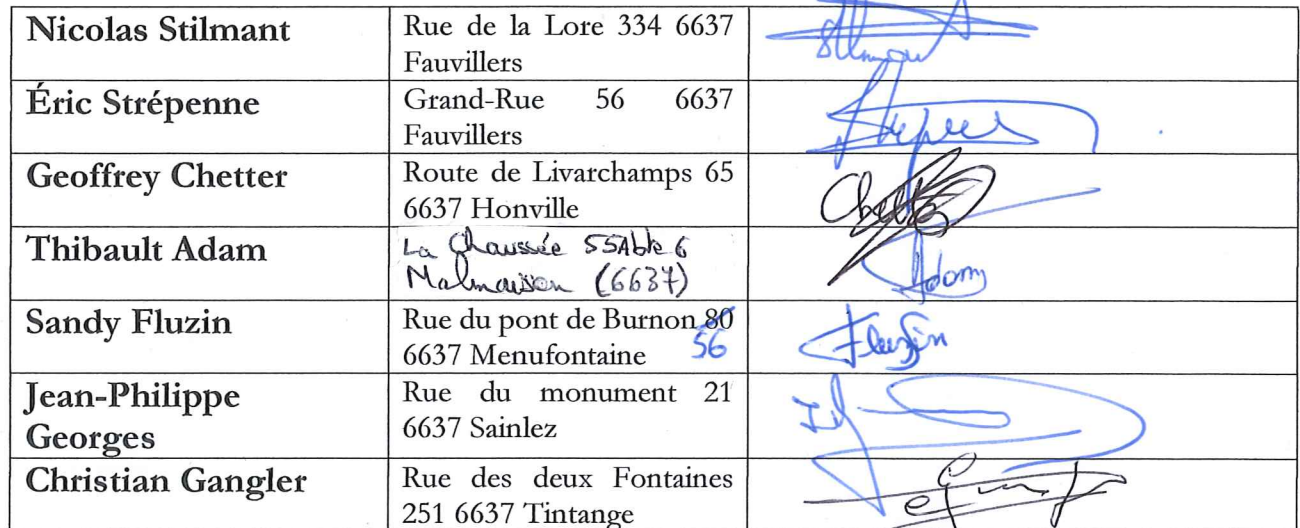 Nicolas Stilmant
Rue de la Lore 334 6637
Fauvillers
Éric Strépenne
Grand-Rue 56 6637
Fauvillers
Geoffrey Chetter
Route de Livarchamps 65
6637 Honville
Thibault Adam
La Chaussée 55A bte 6
Malmaison (6637)
Adam
Sandy Fluzin
Rue du pont de Burnon 80
56
6637 Menufontaine
Fluzin
Jean-Philippe
Georges
Rue du monument 21
6637 Sainlez
Christian Gangler
Rue des deux Fontaines
251 6637 Tintange